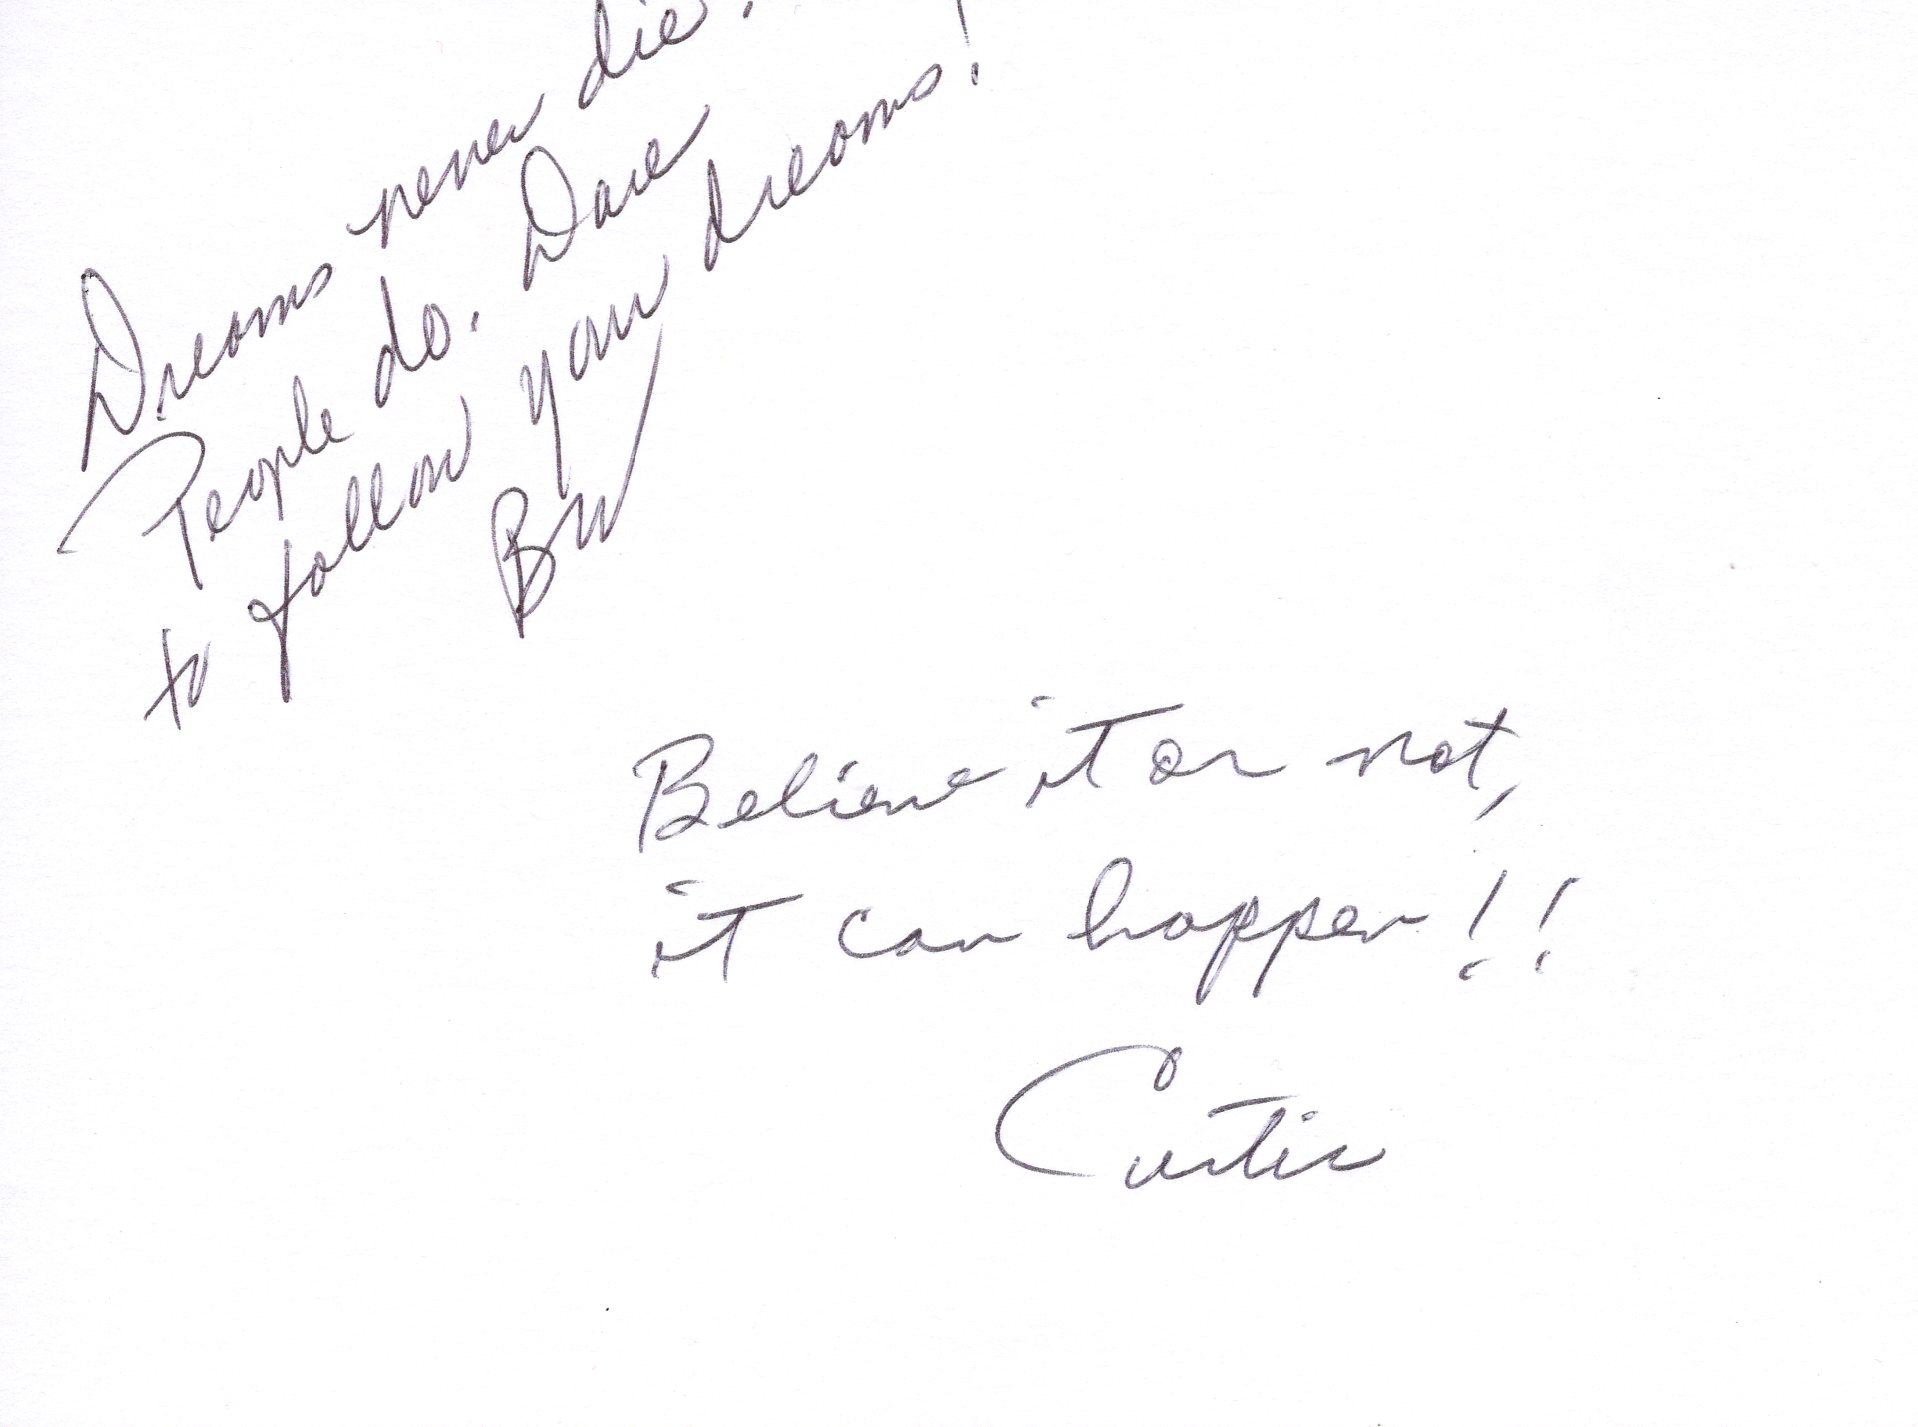 Dreams never die.
People do. Dare
to follow your dreams!
BW
Believe it or not,
it can happen!!
Curtis